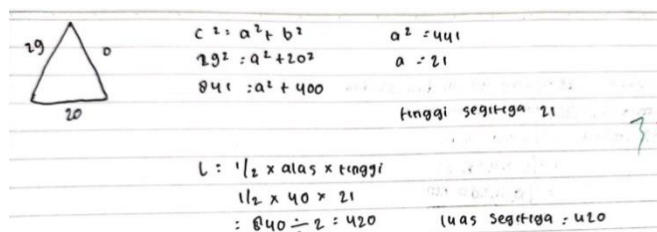 29
0
20
c² = a² + b²
29² = a² + 20²
841 = a² + 400
a² = 441
a = 21
tinggi segitiga 21
3
L = 1/2 x alas x tinggi
1/2 x 40 x 21
= 840 ÷ 2 = 420
luas segitiga = 420